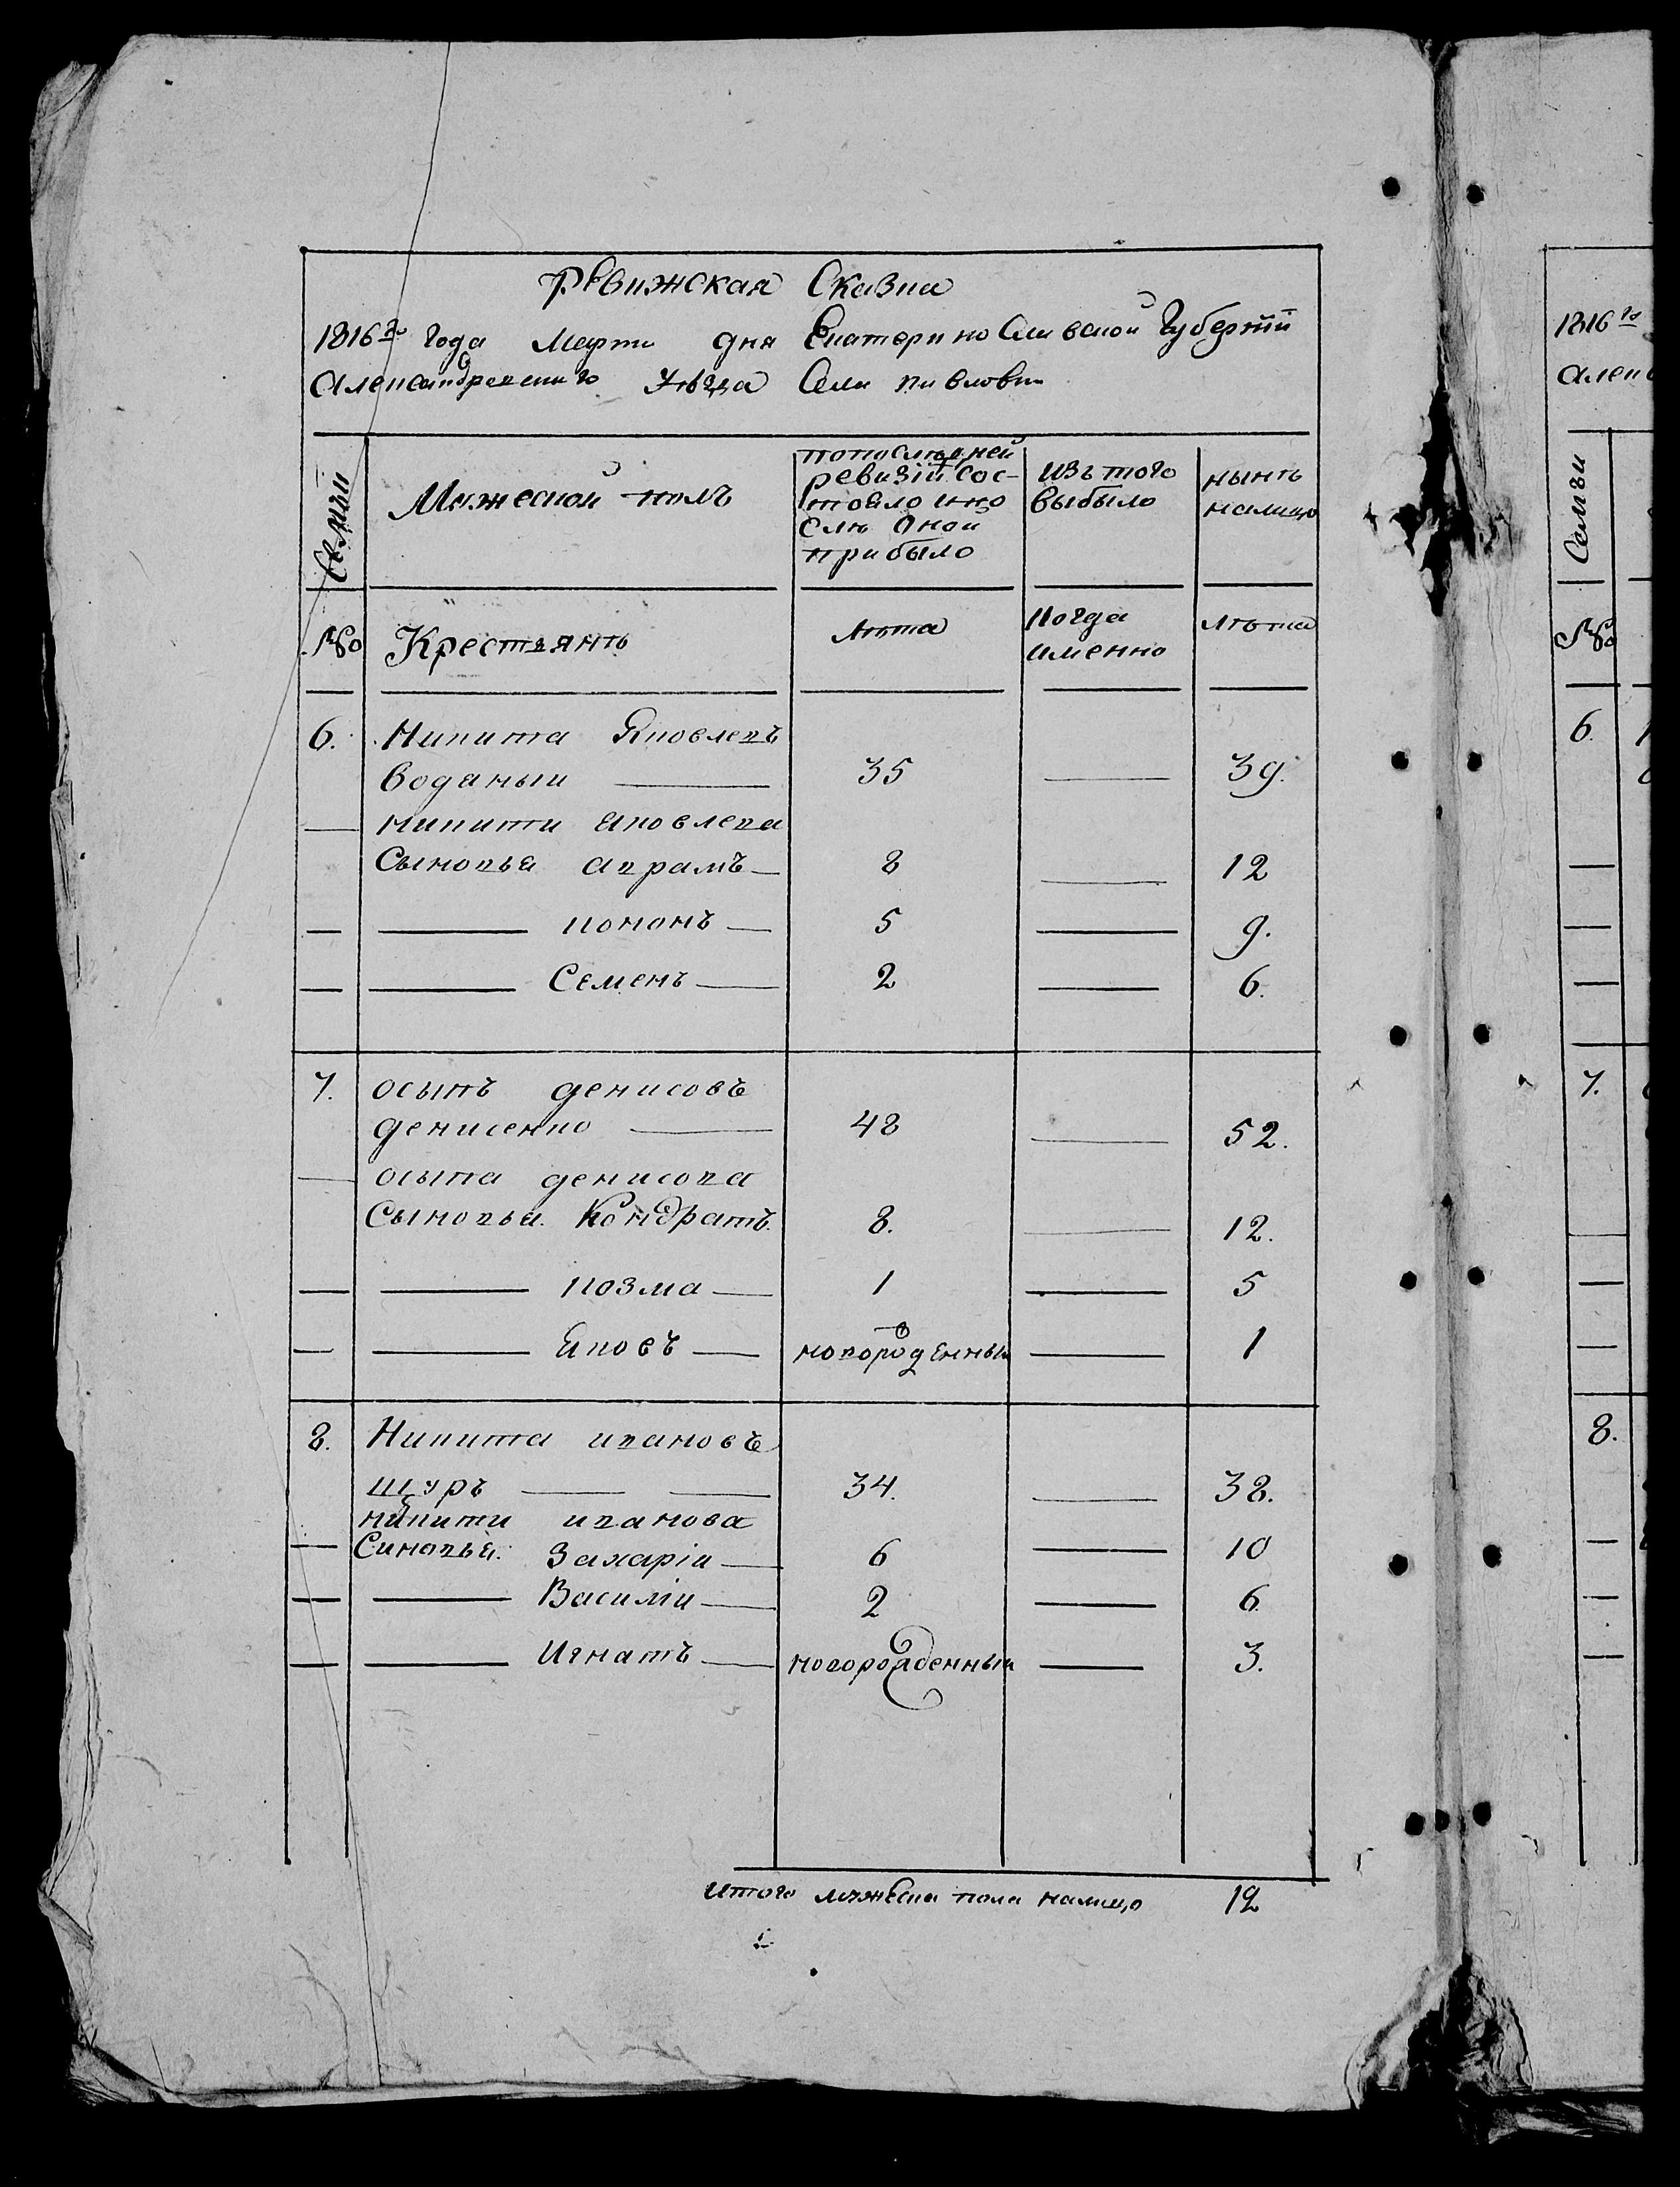 Ревижская Сказка
1816го года Марта дня Екатерино Славской Губернїи
Александревскаго уѣзда Села павловки
Семьи
Мужеской полъ
попоследней
ревизїи сос-
тояло ино
слѣ Оной
прибыло
изъ того
выбыло
нынѣ
налицо
№ Крестьянѣ
лѣта
когда
именно
лѣта
6. Никита Яковлевъ
водяный 35 39.
никити яковлева
Сыновья аврамъ 8 12
кононъ 5 9.
Семенъ 2 6.
7. осыпъ денисовъ
денисенко 48 52.
осыпа денисова
Сыновья Кондратъ. 8. 12.
козма 1 5
яковъ новорожденный 1
8. Никита ивановъ
щуръ 34. 38.
никити иванова
Синовья. Захарїй 6 10
Василїй 2 6
Игнатъ новорожденный 3.
Итого мужеска пола налицо 12
1816го
Алек
Семьи
№
6.
7.
8.